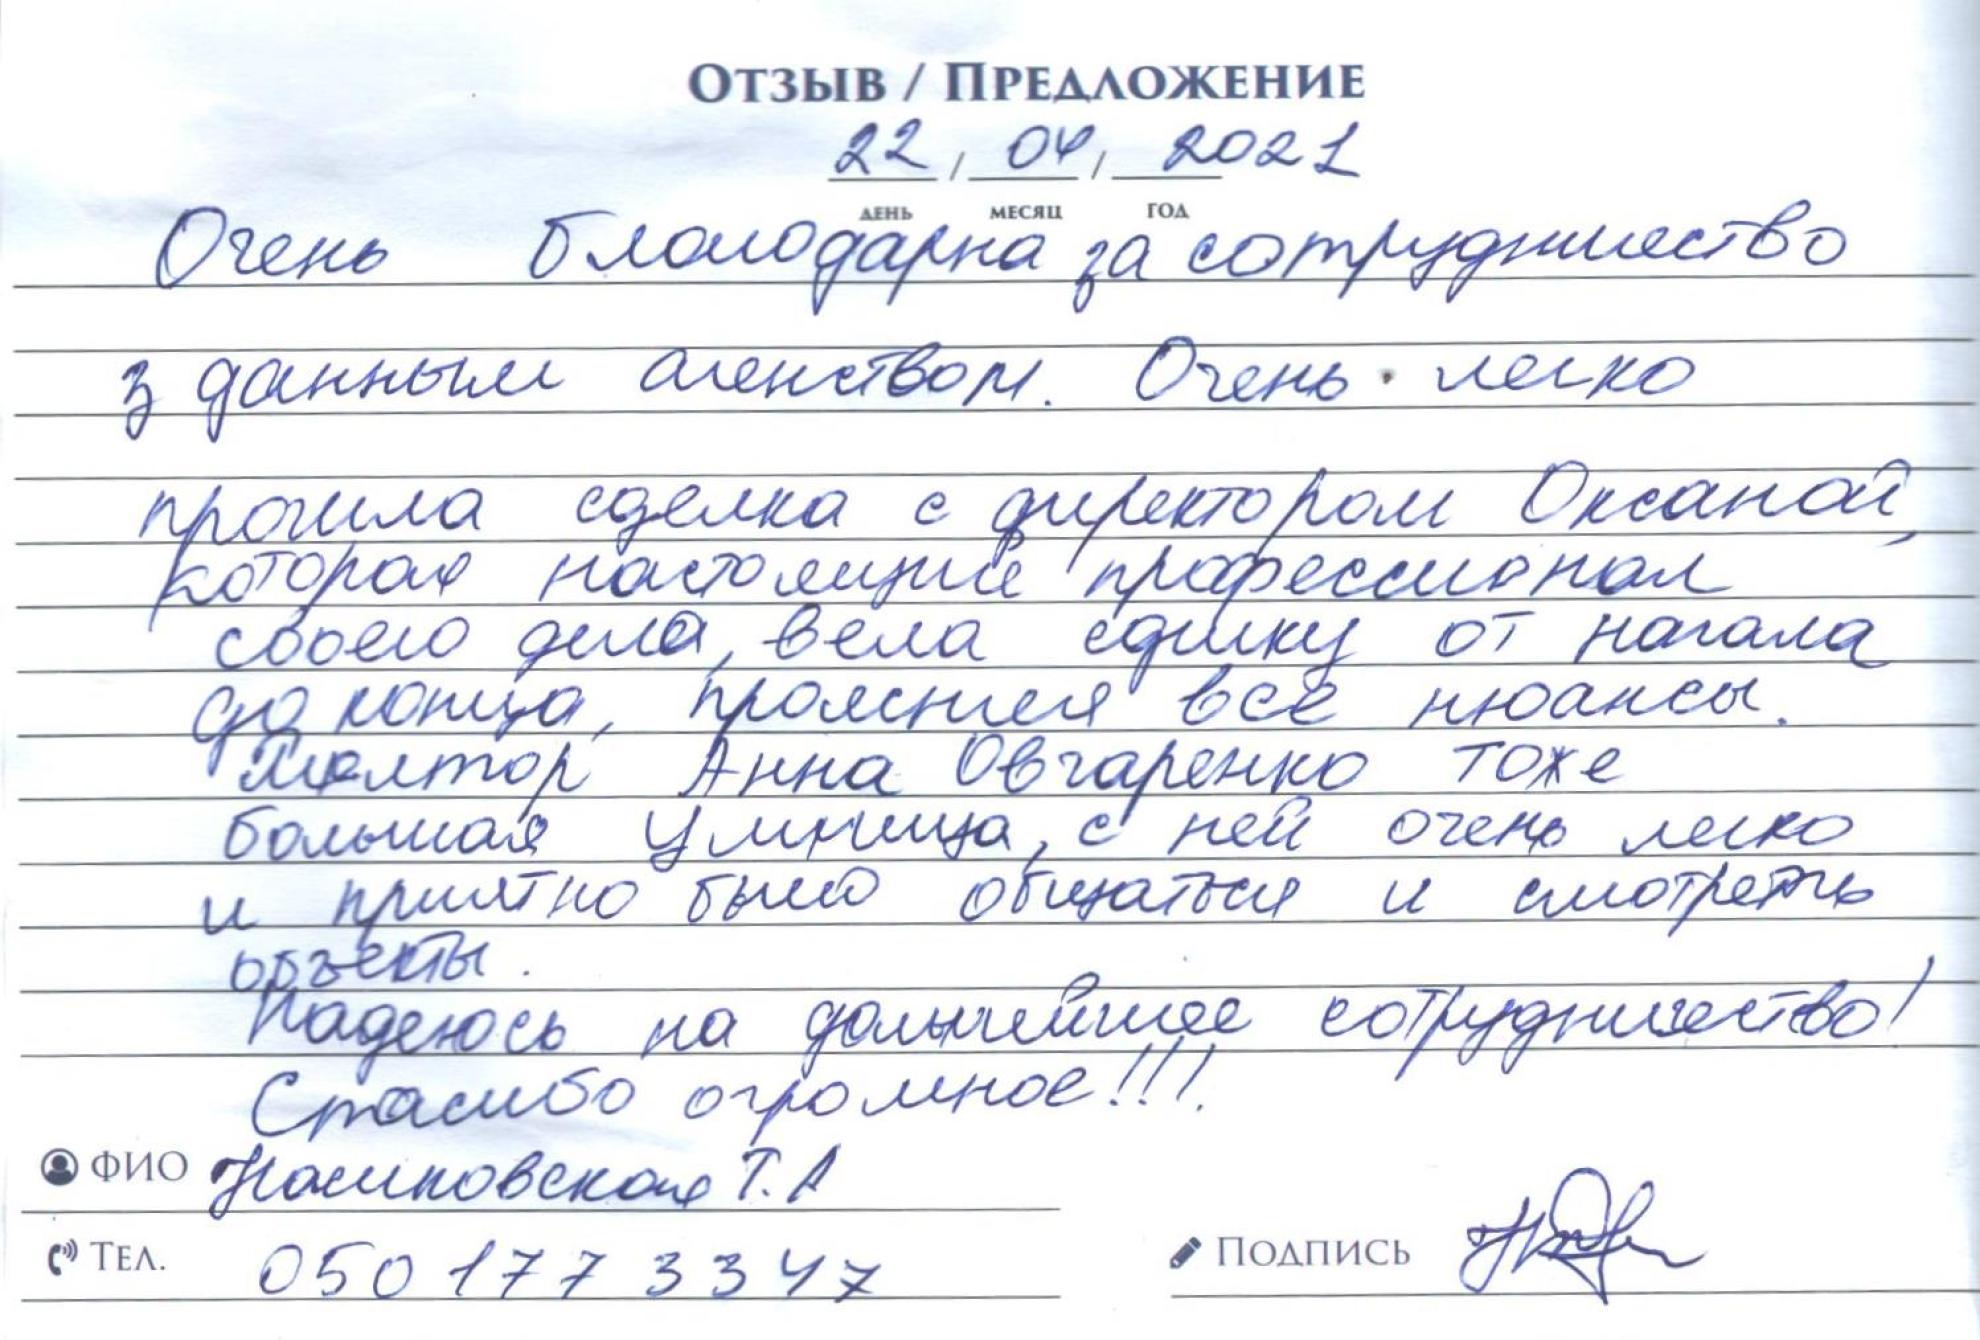 ОТЗЫВ / ПРЕДЛОЖЕНИЕ
22 / 04 / 2021
ДЕНЬ МЕСЯЦ ГОД
Очень благодарна за сотрудничество
з данным агенством. Очень легко
прошла сделка с директором Оксаной,
которая настоящий профессионал
своего дела, вела сделку от начала
до конца, прояснила все нюансы.
Анна Овчаренко тоже
большая умница, с ней очень легко
и приятно было общаться и смотреть
объекты.
Надеюсь на дальнейшее сотрудничество!
Спасибо огромное!!!
ФИО Т.А
ТЕЛ. 050 177 33 47
ПОДПИСЬ